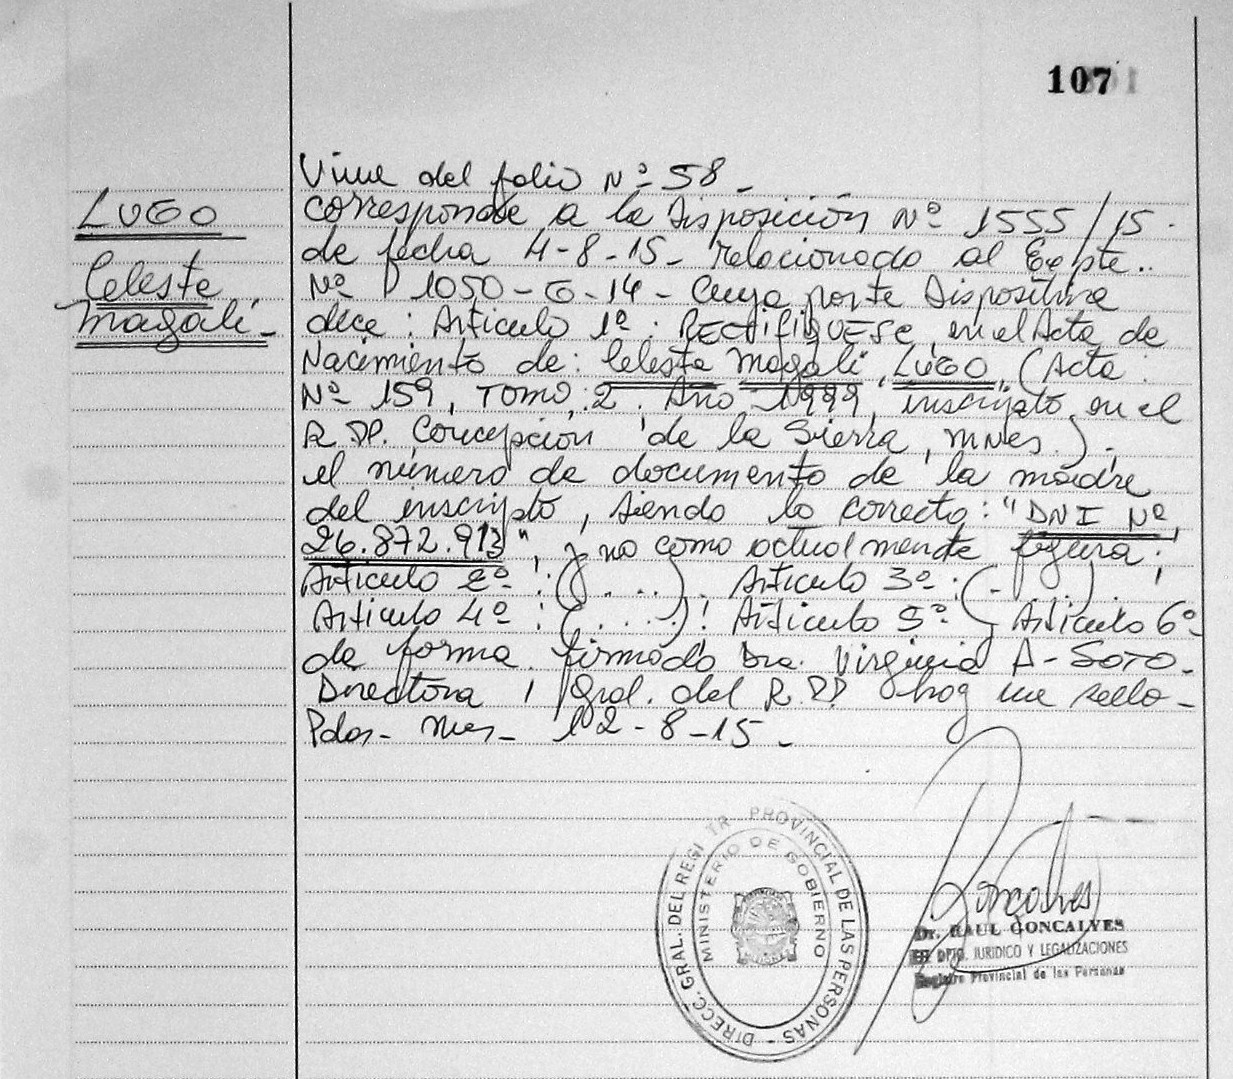 107
LUGO
Celeste
Magalí-
Viene del folio Nº 58-
corresponde a la Disposición Nº 1555/15.
de fecha 4-8-15- relacionado al Expte..
Nº 1050-G-14- Cuya parte Dispositiva
dice: Artículo 1º: RECTIFIQUESE, en el Acta de
Nacimiento de: Celeste Magalí LUGO, (Acta
Nº 159, Tomo 2. Año 1999, inscripto en el
R.P.P. Concepción de la Sierra, Mnes.).
el número de documento de la madre
del inscripto, siendo lo correcto: "DNI Nº
26.872.913", y no como actualmente figura.
Artículo 2º: (....). Artículo 3º: (...).
Artículo 4º: (....). Artículo 5º Artículo 6º
de forma. firmado Dra. Virginia A-SOTO.
Directora Gral. del R.P.P hay un sello-
Pdas- Mnes- 12-8-15-
DIRECC. GRAL. DEL REGI TR PROVINCIAL DE LAS PERSONAS -
MINISTERIO DE GOBIERNO
Goncalves
Dr. RAUL GONCALVES
DPTO. JURIDICO Y LEGALIZACIONES
Registro Provincial de las Personas